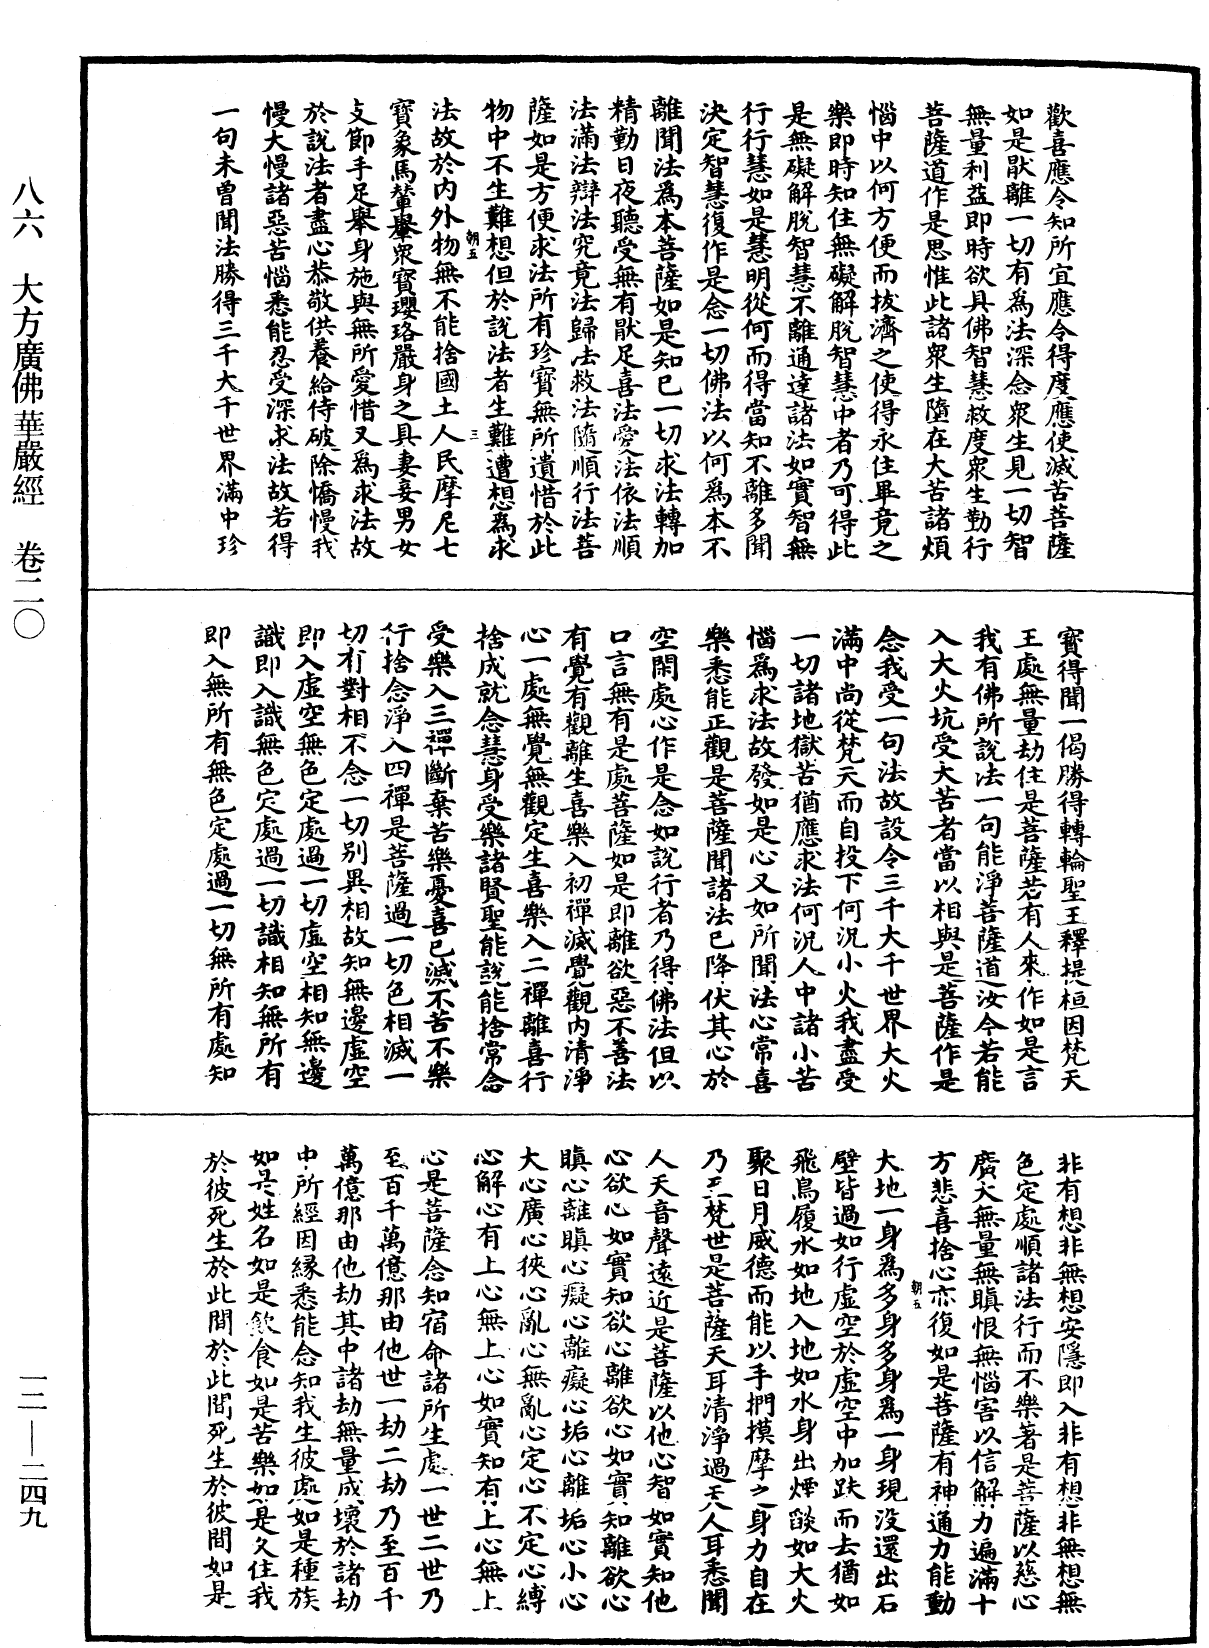 歡喜應令知所宜應令得度應使滅苦菩薩
如是厭離一切有為法深念眾生見一切智
無量利益即時欲具佛智慧救度眾生勤行
菩薩道作是思惟此諸眾生墮在大苦諸煩
惱中以何方便而拔濟之使得永住畢竟之
樂即時知住無礙解脫智慧中者乃可得此
是無礙解脫智慧不離通達諸法如實智無
行行慧如是慧明從何而得當知不離多聞
決定智慧復作是念一切佛法以何為本不
離聞法為本菩薩如是知已一切求法轉加
精勤日夜聽受無有厭足喜法愛法依法順
法滿法辯法究竟法歸法救法隨順行法菩
薩如是方便求法所有珍寶無所遺惜於此
物中不生難想但於說法者生難遭想為求
法故於內外物無不能捨國土人民摩尼七
寶象馬輦轝眾寶瓔珞嚴身之具妻妾男女
支節手足舉身施與無所愛惜又為求法故
於說法者盡心恭敬供養給侍破除憍慢我
慢大慢諸惡苦惱悉能忍受深求法故若得
一句未曾聞法勝得三千大千世界滿中珍
寶得聞一偈勝得轉輪聖王釋提桓因梵天
王處無量劫住是菩薩若有人來作如是言
我有佛所說法一句能淨菩薩道汝今若能
入大火坑受大苦者當以相與是菩薩作是
念我受一句法故設令三千大千世界大火
滿中尚從梵天而自投下何況小火我盡受
一切諸地獄苦猶應求法何況人中諸小苦
惱為求法故發如是心又如所聞法心常喜
樂悉能正觀是菩薩聞諸法已降伏其心於
空閑處心作是念如說行者乃得佛法但以
口言無有是處菩薩如是即離欲惡不善法
有覺有觀離生喜樂入初禪滅覺觀內清淨
心一處無覺無觀定生喜樂入二禪離喜行
捨成就念慧身受樂諸賢聖能說能捨常念
受樂入三禪斷棄苦樂憂喜已滅不苦不樂
行捨念淨入四禪是菩薩過一切色相滅一
切有對相不念一切別異相故知無邊虛空
即入虛空無色定處過一切虛空相知無邊
識即入識無色定處過一切識相知無所有
即入無所有無色定處過一切無所有處知
非有想非無想安隱即入非有想非無想無
色定處順諸法行而不樂著是菩薩以慈心
廣大無量無瞋恨無惱害以信解力遍滿十
方悲喜捨心亦復如是菩薩有神通力能動
大地一身為多身多身為一身現沒還出石
壁皆過如行虛空於虛空中加趺而去猶如
飛鳥履水如地入地如水身出煙燄如大火
聚日月威德而能以手捫摸摩之身力自在
乃至梵世是菩薩天耳清淨過天人耳悉聞
人天音聲遠近是菩薩以他心智如實知他
心欲心如實知欲心離欲心如實知離欲心
瞋心離瞋心癡心離癡心垢心離垢心小心
大心廣心狹心亂心無亂心定心不定心縛
心解心有上心無上心如實知有上心無上
心是菩薩念知宿命諸所生處一世二世乃
至百千萬億那由他世一劫二劫乃至百千
萬億那由他劫其中諸劫無量成壞於諸劫
中所經因緣悉能念知我生彼處如是種族
如是姓名如是飲食如是苦樂如是久住我
於彼死生於此間於此間死生於彼間如是
朝五
三
朝五
八六 大方廣佛華嚴經 卷二〇
一二—二四九